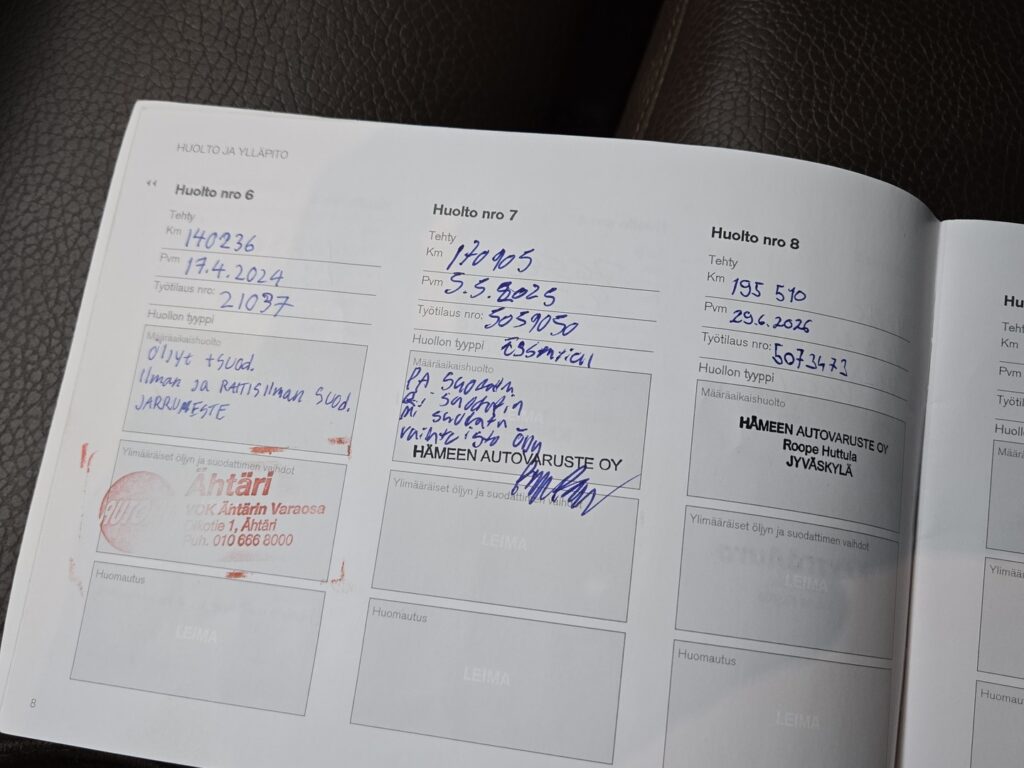 HUOLTO JA YLLÄPITO
‹‹ Huolto nro 6
Tehty
Km 140236
Pvm 17.4.2024
Työtilaus nro: 21037
Huollon tyyppi
Määräaikaishuolto
Öljyt + suod.
Ilman ja RAITISilman suod.
JARRUNESTE
Ylimääräiset öljyn ja suodattimen vaihdot
AUTO
Ähtäri
VDK Ähtärin Varaosa
1, Ähtäri
Puh. 010 666 8000
Huomautus
LEIMA
8
Huolto nro 7
Tehty
Km 170905
Pvm 5.5.2025
Työtilaus nro: 5059050
Huollon tyyppi Essential
Määräaikaishuolto
PA Suodatin
suodatin
suodatin
vaihteisto öljy
HÄMEEN AUTOVARUSTE OY
Ylimääräiset öljyn ja suodattimen vaihdot
LEIMA
Huomautus
LEIMA
Huolto nro 8
Tehty
Km 195 510
Pvm 29.6.2026
Työtilaus nro: 5073473
Huollon tyyppi
Määräaikaishuolto
HÄMEEN AUTOVARUSTE OY
Roope Huttula
JYVÄSKYLÄ
Ylimääräiset öljyn ja suodattimen vaihdot
LEIMA
Huomautus
LEIMA
Km